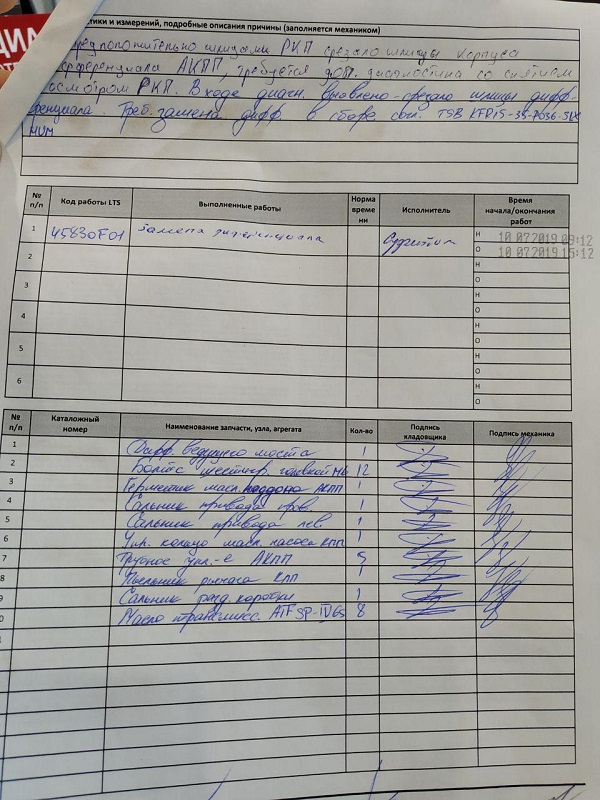 ДИА
тики и измерений, подробные описания причины (заполняется механиком)
редположительно шлицами РКП срезало шлицы корпуса
фференциала АКПП, требуется доп. диагностика со снятием
осмотром РКП. В ходе диагн. выявлено - срезало шлицы дифф-
ренциала. Треб. замена дифф. в сборе согл. TSB KFD15-35-P036-SLX
MUM
№ п/п Код работы LTS Выполненные работы Норма време ни Исполнитель Время начала/окончания работ
1 45830F01 Замена дифференциала Н 10 07 2019 09:12
О 10 07 2019 15:12
2 Н
О
3 Н
О
4 Н
О
5 Н
О
6 Н
О
№ п/п Каталожный номер Наименование запчасти, узла, агрегата Кол-во Подпись кладовщика Подпись механика
1 Дифф. ведущего моста 1
2 Болт с шестигр. головкой М6 12
3 Герметик масл. поддона АКПП 1
4 Сальник привода прав. 1
5 Сальник привода лев 1
6 Упл. кольцо масл. насоса КПП 1
7 Трубное упл-е АКПП 5
8 Пыльник рычага КПП 1
9 Сальник разд. коробки 1
0 Масло трансмисс. ATF SP-IV 8